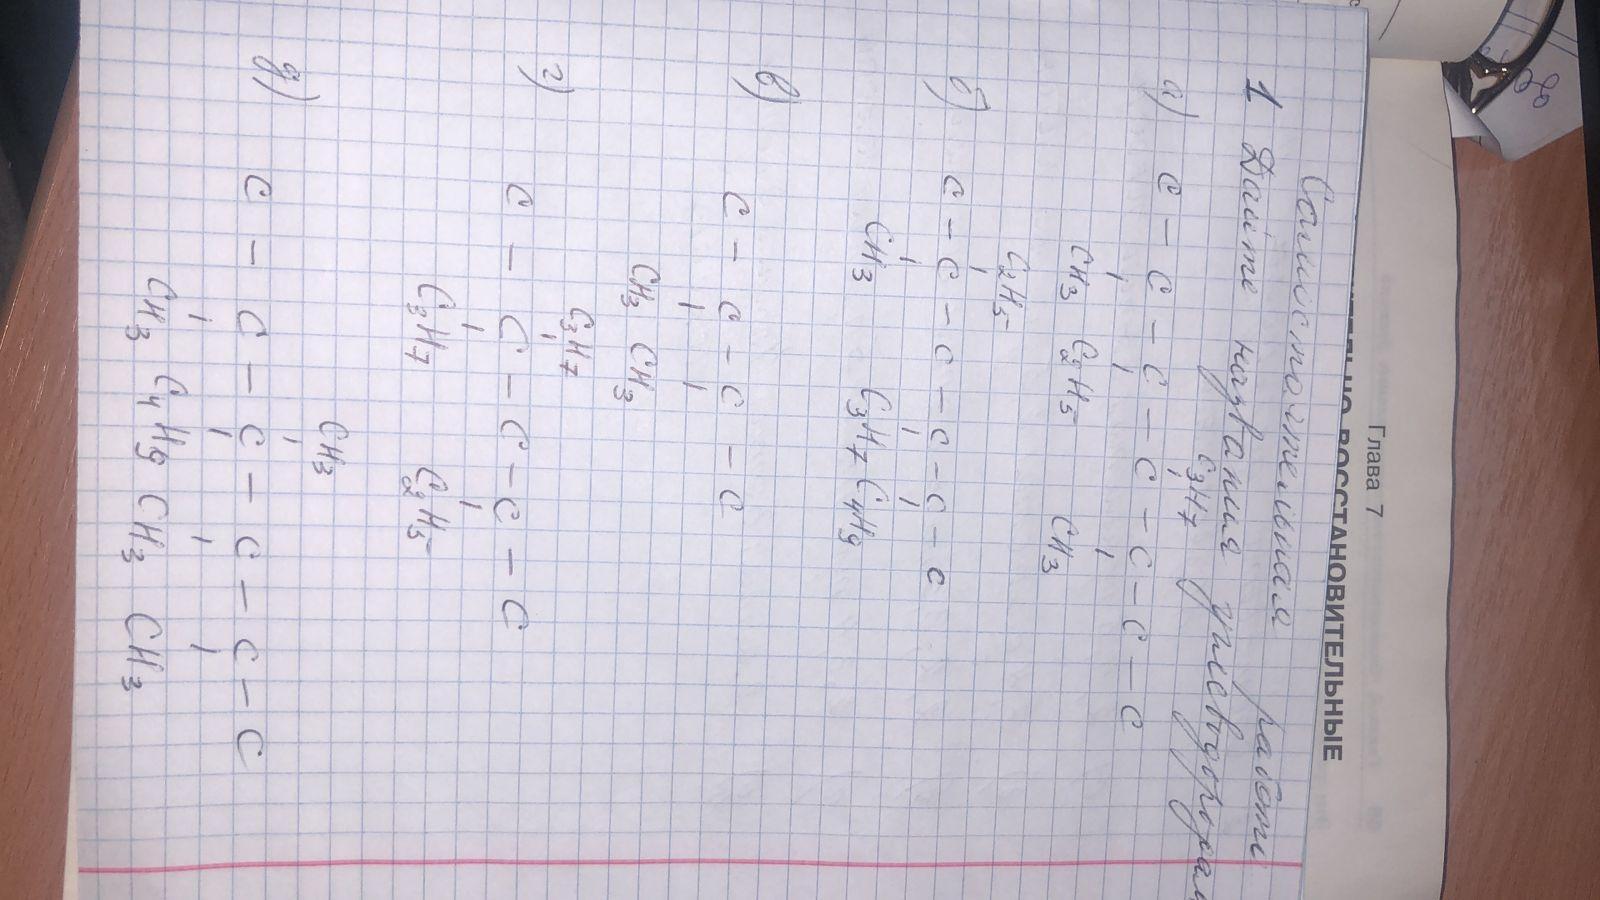 Глава 7
ВОССТАНОВИТЕЛЬНЫЕ
Самостоятельная работа
1 Дайте названия углеводородам
C3H7
а) C – C – C – C – C – C – C
CH3 C2H5 CH3
C2H5
б) C – C – C – C – C – C
CH3 C3H7 C4H9
в) C – C – C – C
CH3 CH3
C3H7
г) C – C – C – C – C
C3H7 C2H5
CH3
д) C – C – C – C – C – C
CH3 C4H9 CH3 CH3